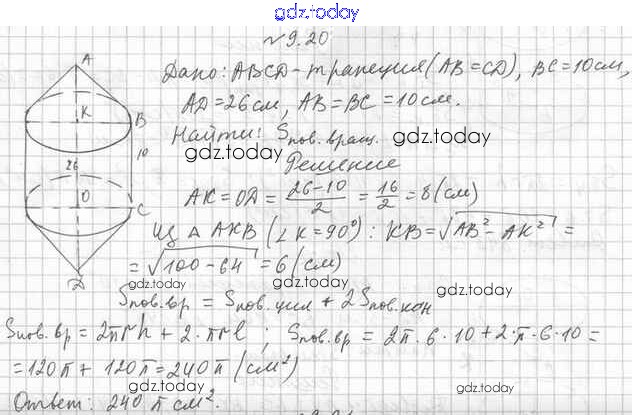 gdz.today
№ 9.20
A
K
B
10
26
O
C
D
Дано: ABCD - трапеция (AB = CD), BC = 10 см,
AD = 26 см, AB = BC = 10 см.
Найти: Sпов. вращ.
gdz.today
gdz.today
Решение
AK = OD = (26-10)/2 = 16/2 = 8 (см)
Из △ AKB (∠K = 90°): KB = √(AB² - AK²) =
= √(100 - 64) = 6 (см)
gdz.today
gdz.today
Sпов. вр = Sпов. цил + 2 Sпов. кон
Sпов. вр = 2πrh + 2·πrl ; Sпов. вр = 2π·6·10 + 2·π·6·10 =
= 120π + 120π = 240π (см²)
gdz.today
gdz.today
Ответ: 240 π см².